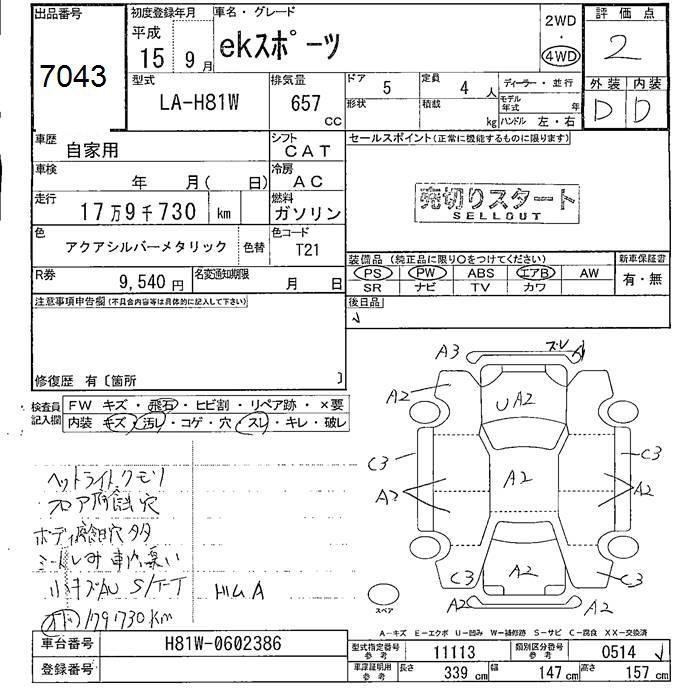 出品番号
7043
初度登録年月
平成
15 9月
車名・グレード
ekスポーツ
2WD
・
4WD
評価点
2
外装 内装
D D
型式
LA-H81W
排気量
657
CC
ドア 5
定員 4 人
形状
積載 kg
ディーラー・並行
モデル年式 年
ハンドル 左・右
車歴
自家用
シフト
CAT
車検
年 月( 日)
冷房
AC
走行
17万9千730 km
燃料
ガソリン
色
アクアシルバーメタリック
色替
色コード
T21
R券
9,540円
名変通知期限
月 日
セールスポイント(正常に機能するものに限ります)
売切りスタート
SELLOUT
装備品(純正品に限り○をつけてください)
PS PW ABS エアB AW
SR ナビ TV カワ
新車保証書
有・無
後日品
注意事項申告欄(不具合内容等は具体的に記入して下さい)
修復歴 有〔箇所 〕
検査員
記入欄
FW キズ・飛石・ヒビ割・リペア跡・×要
内装 キズ・汚レ・コゲ・穴・スレ・キレ・破レ
ヘットライトクモリ
フロア腐蝕穴
ボディ腐蝕穴多々
シートしみ 車内臭い
リキズAU S/T-T
オド179730km
A3
ズレ
A
A2
U A2
C3
C3
A2
A2
A2
C3
A2
C3
A2
A2
スペア
A-キズ E-エクボ U-凹み W-補修跡 S-サビ C-腐食 XX-交換済
車台番号
H81W-0602386
登録番号
型式指定番号
参考
11113
類別区分番号
参考
0514
車庫証明用
参考
長さ 339cm
幅 147cm
高さ 157cm